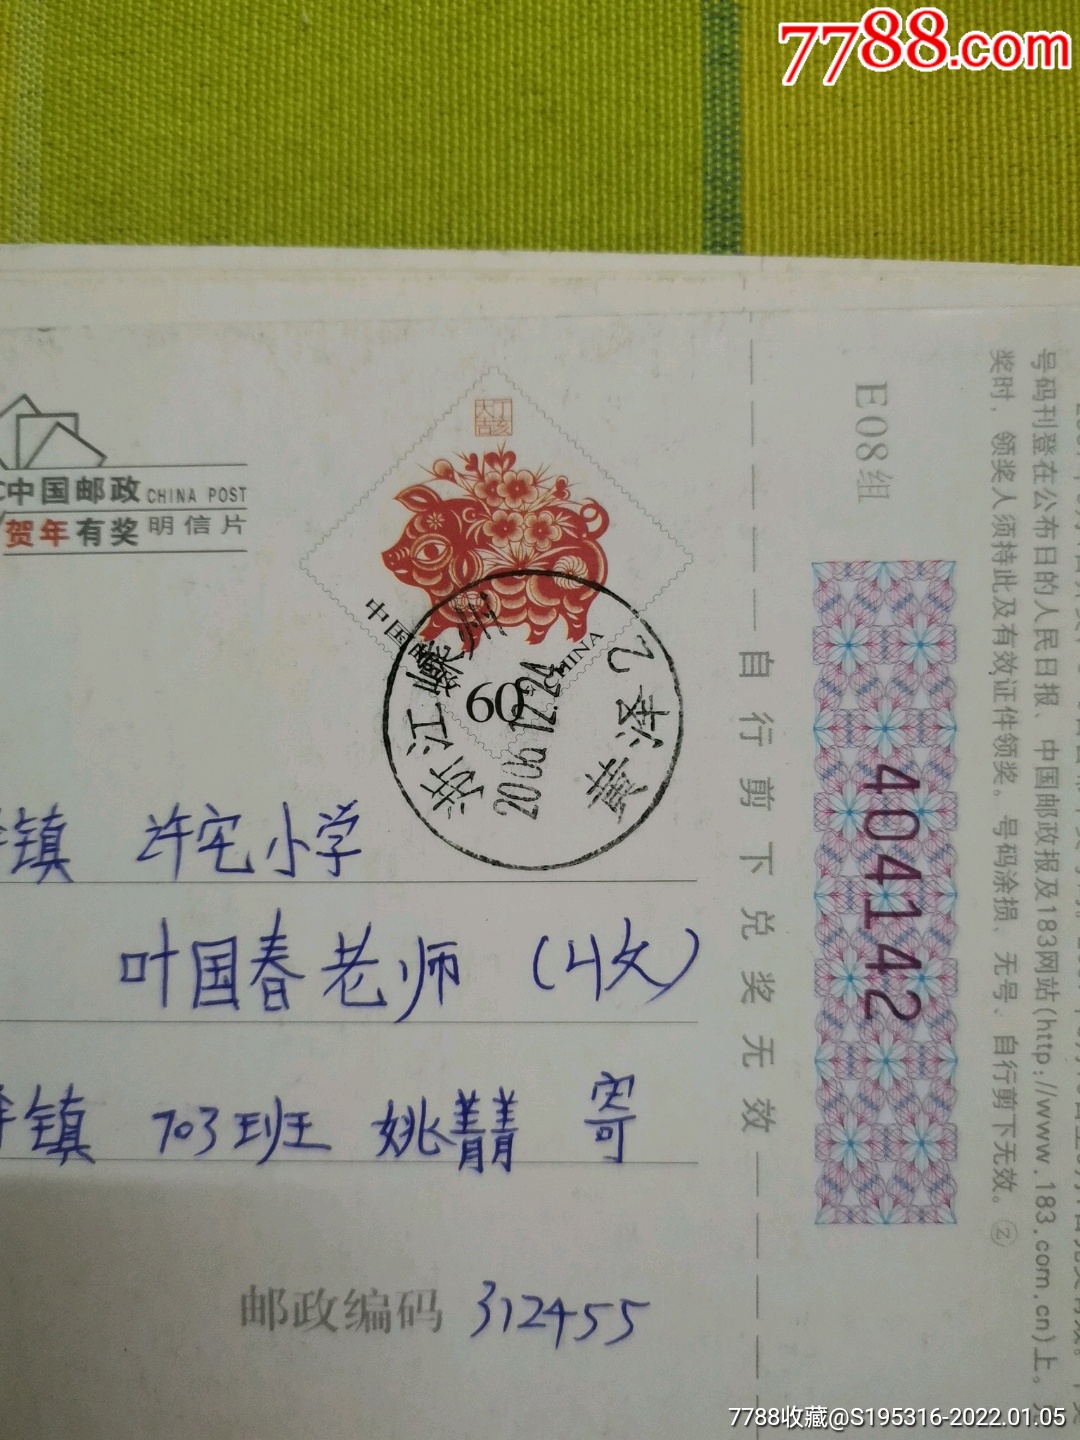 7788.com
中国邮政 CHINA POST
贺年有奖 明信片
丁亥
大吉
中国邮政
CHINA
60
浙江嵊州
2006.12.24
乙
镇 许宅小学
叶国春老师 (收)
镇 703班 姚菁菁 寄
邮政编码 312455
自行剪下兑奖无效
E08组
404142
号码刊登在公布日的人民日报、中国邮政报及183网站(http://www.183.com.cn)上。
奖时,领奖人须持此及有效证件领奖。号码涂损、无号、自行剪下无效。②
7788收藏@S195316-2022.01.05